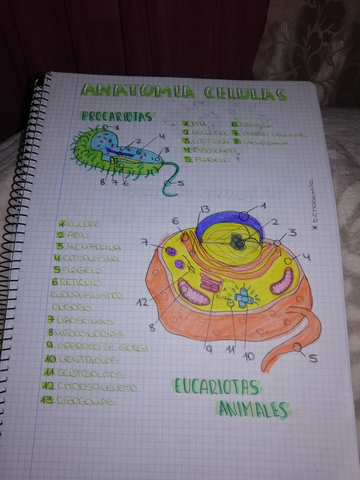 ANATOMIA CELULAS
PROCARIOTAS
1 PILI
3 CAPSULA
5 FLAGELO
7 PARED CELULAR
1
2
3
4
5
6
7
8
* CITOSOMA
1 NUCLEO
2 ADN
3 MEMBRANA
4 CITOPLASMA
5 FLAGELO
6 RETICULO
ENDOPLASMATICO
7 LISOSOMAS
8 MITOCONDRIAS
9 APARATO DE GOLGI
10 CENTRIOLOS
12 CITOESQUELETO
13 RIBOSOMAS
13
1
6
2
3
7
4
12
8
9
11
10
5
EUCARIOTAS
ANIMALES